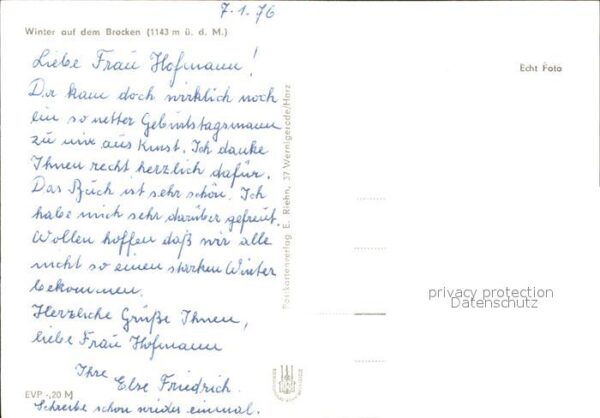 7.1.76
Winter auf dem Brocken (1143 m ü. d. M.)
Liebe Frau Hofmann!
Da kam doch wirklich noch
ein so netter Geburtstagsmann
zu mir aus Kunst. Ich danke
Ihnen recht herzlich dafür.
Das Buch ist sehr schön. Ich
habe mich sehr darüber gefreut.
Wollen hoffen daß wir alle
nicht so einen starken Winter
bekommen.
Herzliche Grüße Ihnen,
liebe Frau Hofmann
Ihre
Else Friedrich.
Schreibe schon wieder einmal.
EVP -,20 M
Postkartenverlag E. Riehn, 37 Wernigerode/Harz
Echt Foto
privacy protection
Datenschutz